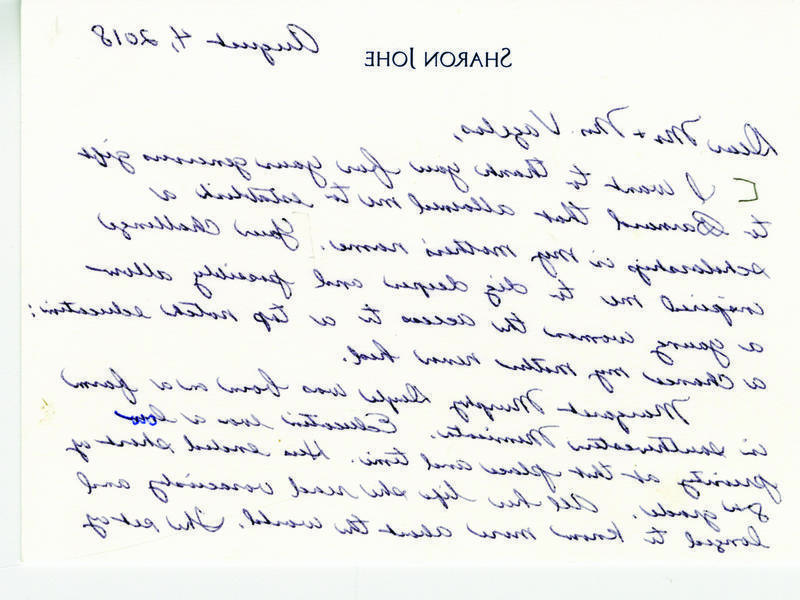 SHARON JOHE
August 4, 2018
Dear Mr + Mrs. Vagelos,
I want to thank you for your generous gift
to Barnard that allowed me to establish a
scholarship in my mother's name. Your challenge
inspired me to dig deeper and possibly allow
a young woman the access to a top notch education:
a chance my mother never had.
Margaret Murphy was born on a farm
in southwestern Minnesota. Education was a low
priority at that place and time. Hers ended short of
8th grade. All her life she read voraciously and
longed to know more about the world. The set of